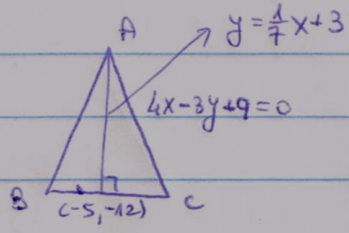 A
y = 1/7 x + 3
4x - 3y + 9 = 0
B
(-5, -12)
C